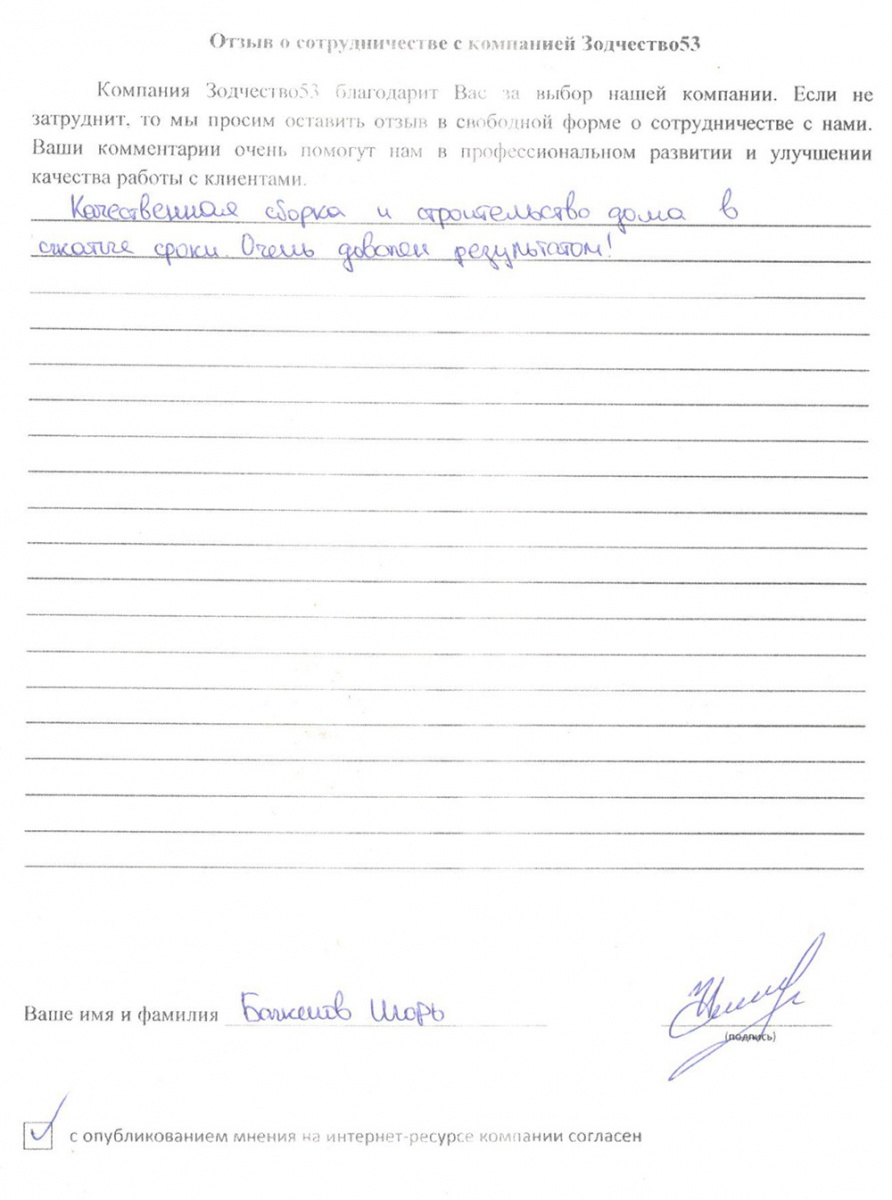 Отзыв о сотрудничестве с компанией Зодчество53
Компания Зодчество53 благодарит Вас за выбор нашей компании. Если не
затруднит, то мы просим оставить отзыв в свободной форме о сотрудничестве с нами.
Ваши комментарии очень помогут нам в профессиональном развитии и улучшении
качества работы с клиентами.
Качественная сборка и строительство дома в
сжатые сроки. Очень доволен результатом!
Ваше имя и фамилия Игорь
(подпись)
с опубликованием мнения на интернет-ресурсе компании согласен